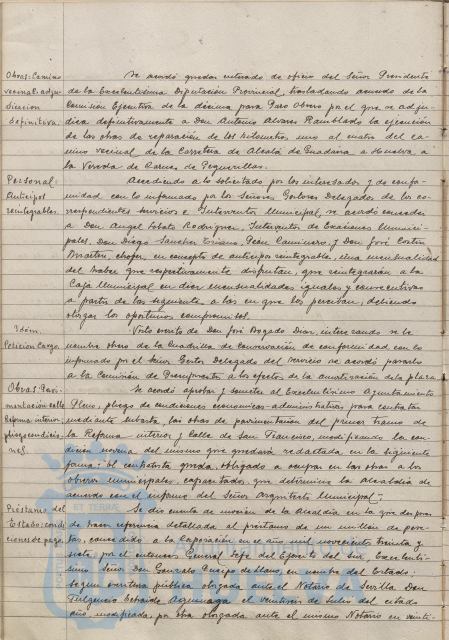 Obras: Camino
vecinal: adju-
dicacion
definitiva.
Se acordó quedar enterado de oficio del Señor Presidente
de la Excelentísima Diputación Provincial, trasladando acuerdo de la
Comisión Ejecutiva de la décima para Paro Obrero por el que se adju-
dica definitivamente a Don Antonio Alvarez Ramblado la ejecución
de las obras de reparación de los kilómetros uno al cuatro del ca-
mino vecinal de la Carretera de Alcalá de Guadaira a Huelva a
la Vereda de Carnes de Peguerillas.
Personal:
Anticipos
reintegrables.
Accediendo a lo solicitado por los interesados y de confor-
midad con lo informado por los Señores Gestores Delegados de los co-
rrespondientes servicios e Interventor Municipal, se acordó conceder
a Don Angel Lobato Rodriguez, Interventor de Exacciones Munici-
pales, Don Diego Sanchez Triano, Peon Caminero, y Don José Cortés
Martin, chofer, en concepto de anticipo reintegrable, una mensualidad
del haber que respectivamente disfrutan, que reintegrarán a la
Caja Municipal en diez mensualidades iguales y consecutivas
a partir de las siguiente a las en que los perciban, debiendo
otorgar los oportunos compromisos.
Idem.
Peticion cargo.
Visto escrito de Don José Bogado Diaz, interesando se le
nombre obrero de la Cuadrilla de Conservación de conformidad con lo
informado por el Señor Gestor Delegado del Servicio se acordó pasarlo
a la Comisión de Presupuestos a los efectos de la amortización de la plaza
Obras: Pavi-
mentación calle
Reforma interior
pliego condicio-
nes.
Se acordó aprobar y someter al Excelentísimo Ayuntamiento
Pleno, pliego de condiciones economicas-administrativas para contratar
mediante subasta, las obras de pavimentación del primer tramo de
la Reforma interior y calle de San Francisco, modificando la con-
dición novena del mismo que quedará redactada en la siguiente
forma: "El contratista queda obligado a ocupar en las obras a los
obreros municipales capacitados que determine la Alcaldía de
acuerdo con el informe del Señor Arquitecto Municipal".
Préstamo del
Estado: condi-
ciones de pago.
Se dió cuenta de mocion de la Alcaldía en la que despues
de hacer referencia detallada al préstamo de un millón de pese-
tas, concedido a la Corporación en el año mil novecientos treinta y
siete, por el entonces General Jefe del Ejército del Sur, Excelentí-
simo Señor Don Gonzalo Queipo de Llano, en nombre del Estado
segun escritura pública otorgada ante el Notario de Sevilla Don
Fulgencio Echaide Aguinaga el veintiseis de Julio del citado
año modificada por otra otorgada ante el mismo Notario en veinti-